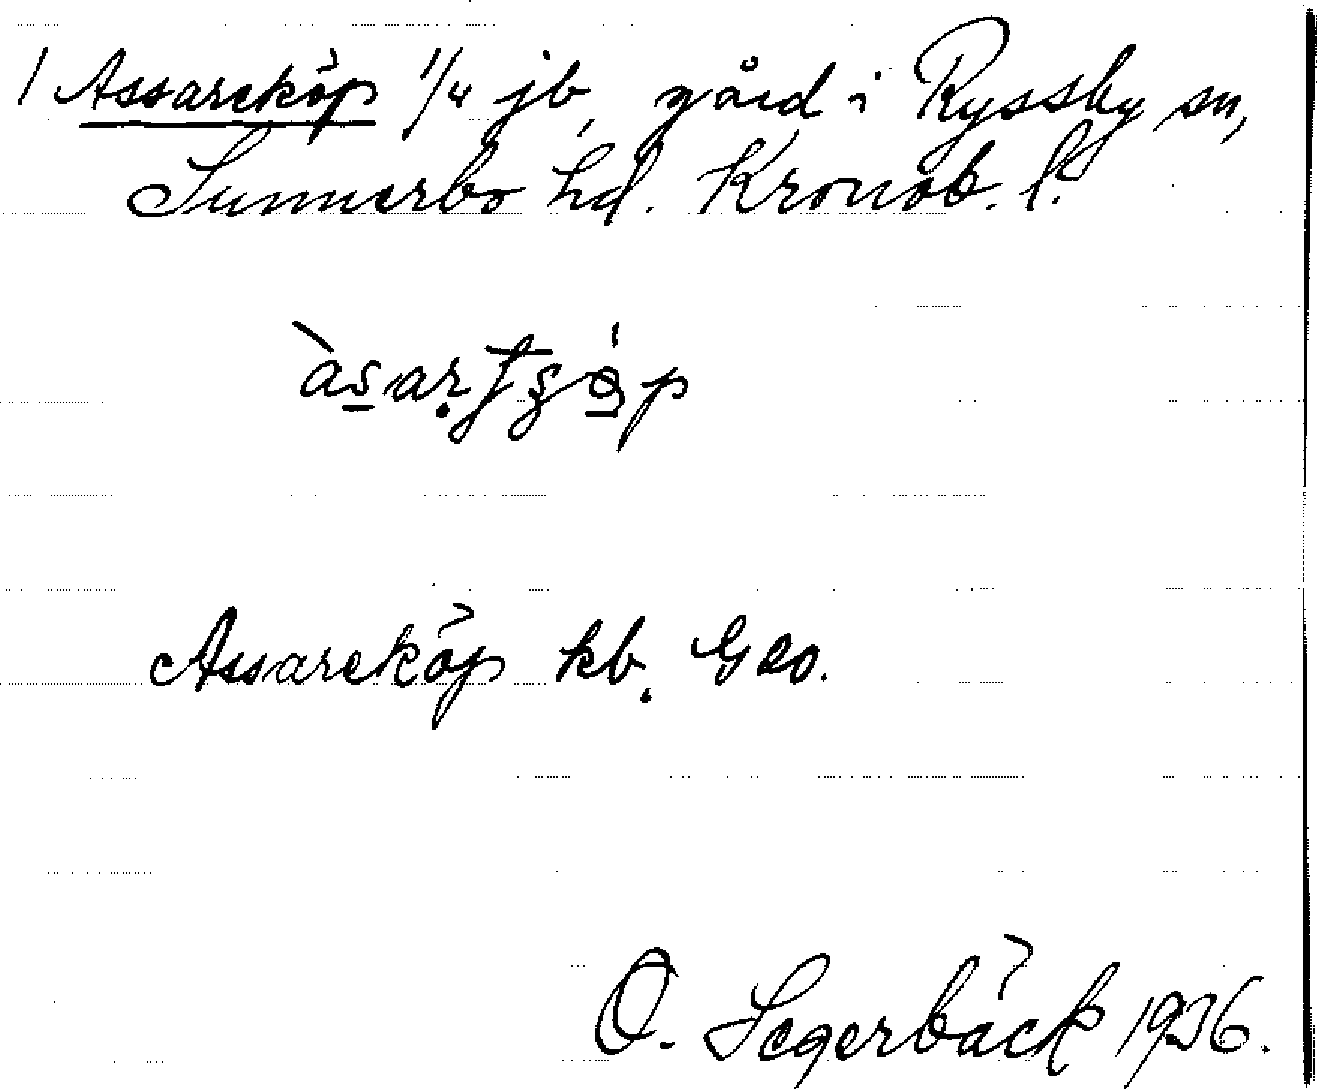 1 Assareköp 1/4 jb, gård i Ryssby sn,
Sunnerbo hd. Kronob. l.
Assareköp kb. Geo.
O. Segerbäck 1936.